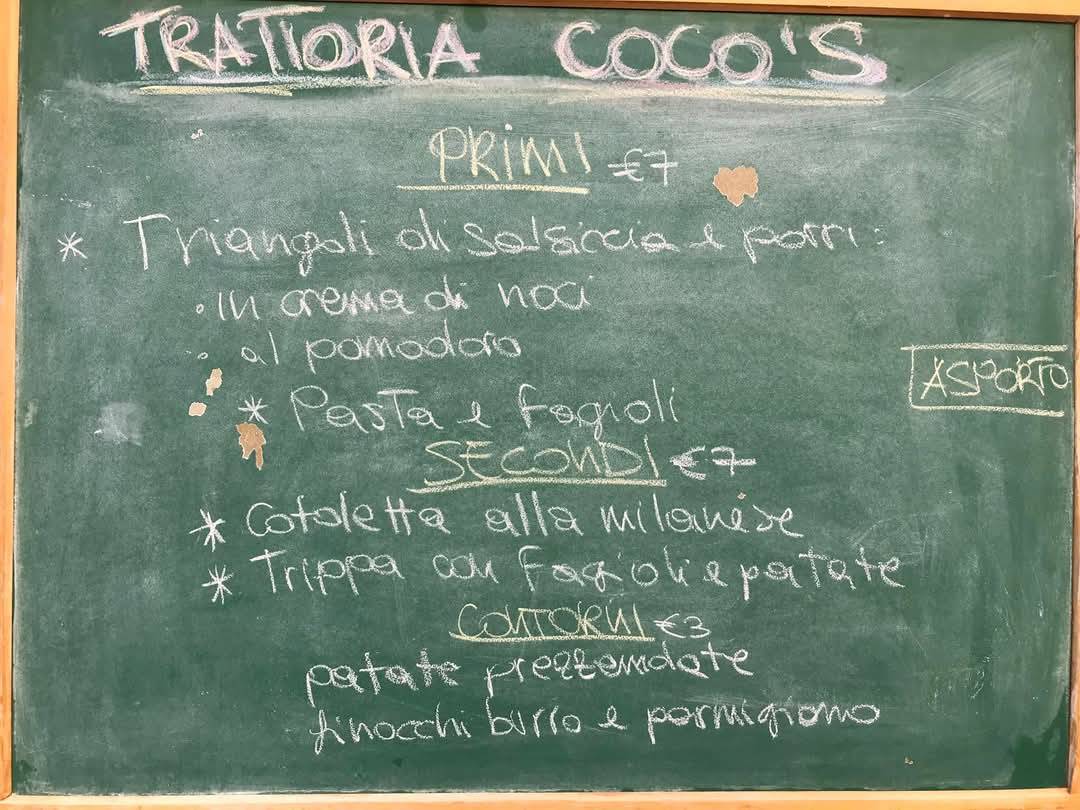 TRATTORIA COCO'S
PRIMI €7
* Triangoli di salsiccia e porri:
• in crema di noci
• al pomodoro
ASPORTO
* Pasta e fagioli
SECONDI €7
* Cotoletta alla milanese
* Trippa con fagioli e patate
CONTORNI €3
patate prezzemolate
finocchi burro e parmigiano